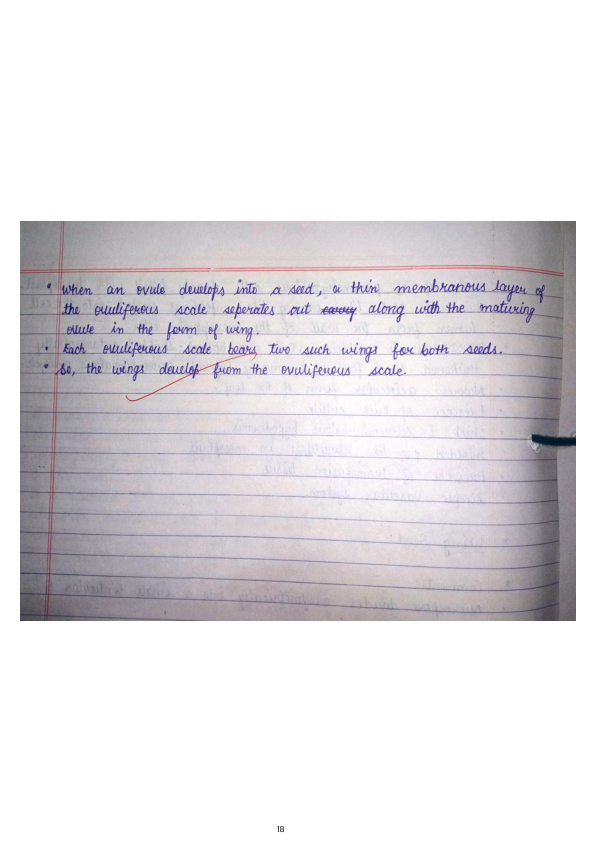 • When an ovule develops into a seed, a thin membranous layer of
the ovuliferous scale seperates out along with the maturing
ovule in the form of wing.
• Each ovuliferous scale bears two such wings for both seeds.
• So, the wings develop from the ovuliferous scale.
18